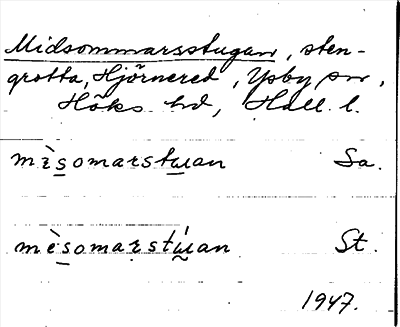 Midsommarsstugan, sten-
grotta, Hjörnered, Ysby sn,
Höks hd, Hall. l.
mìs̲omarstu̲an Sa.
mès̲omaṛstṵ́an St.
1947.